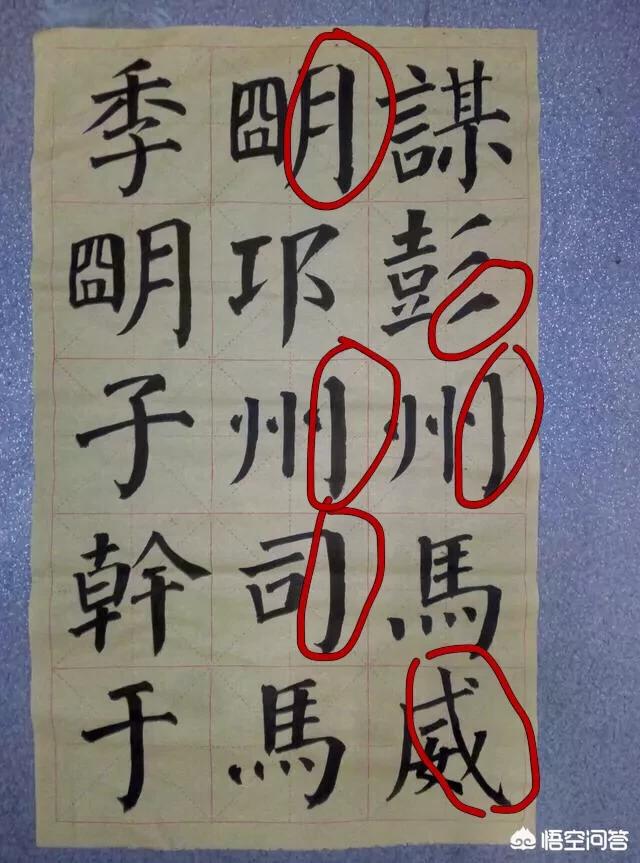 謀彭州馬威
朙邛州司馬
季朙子幹于
悟空问答